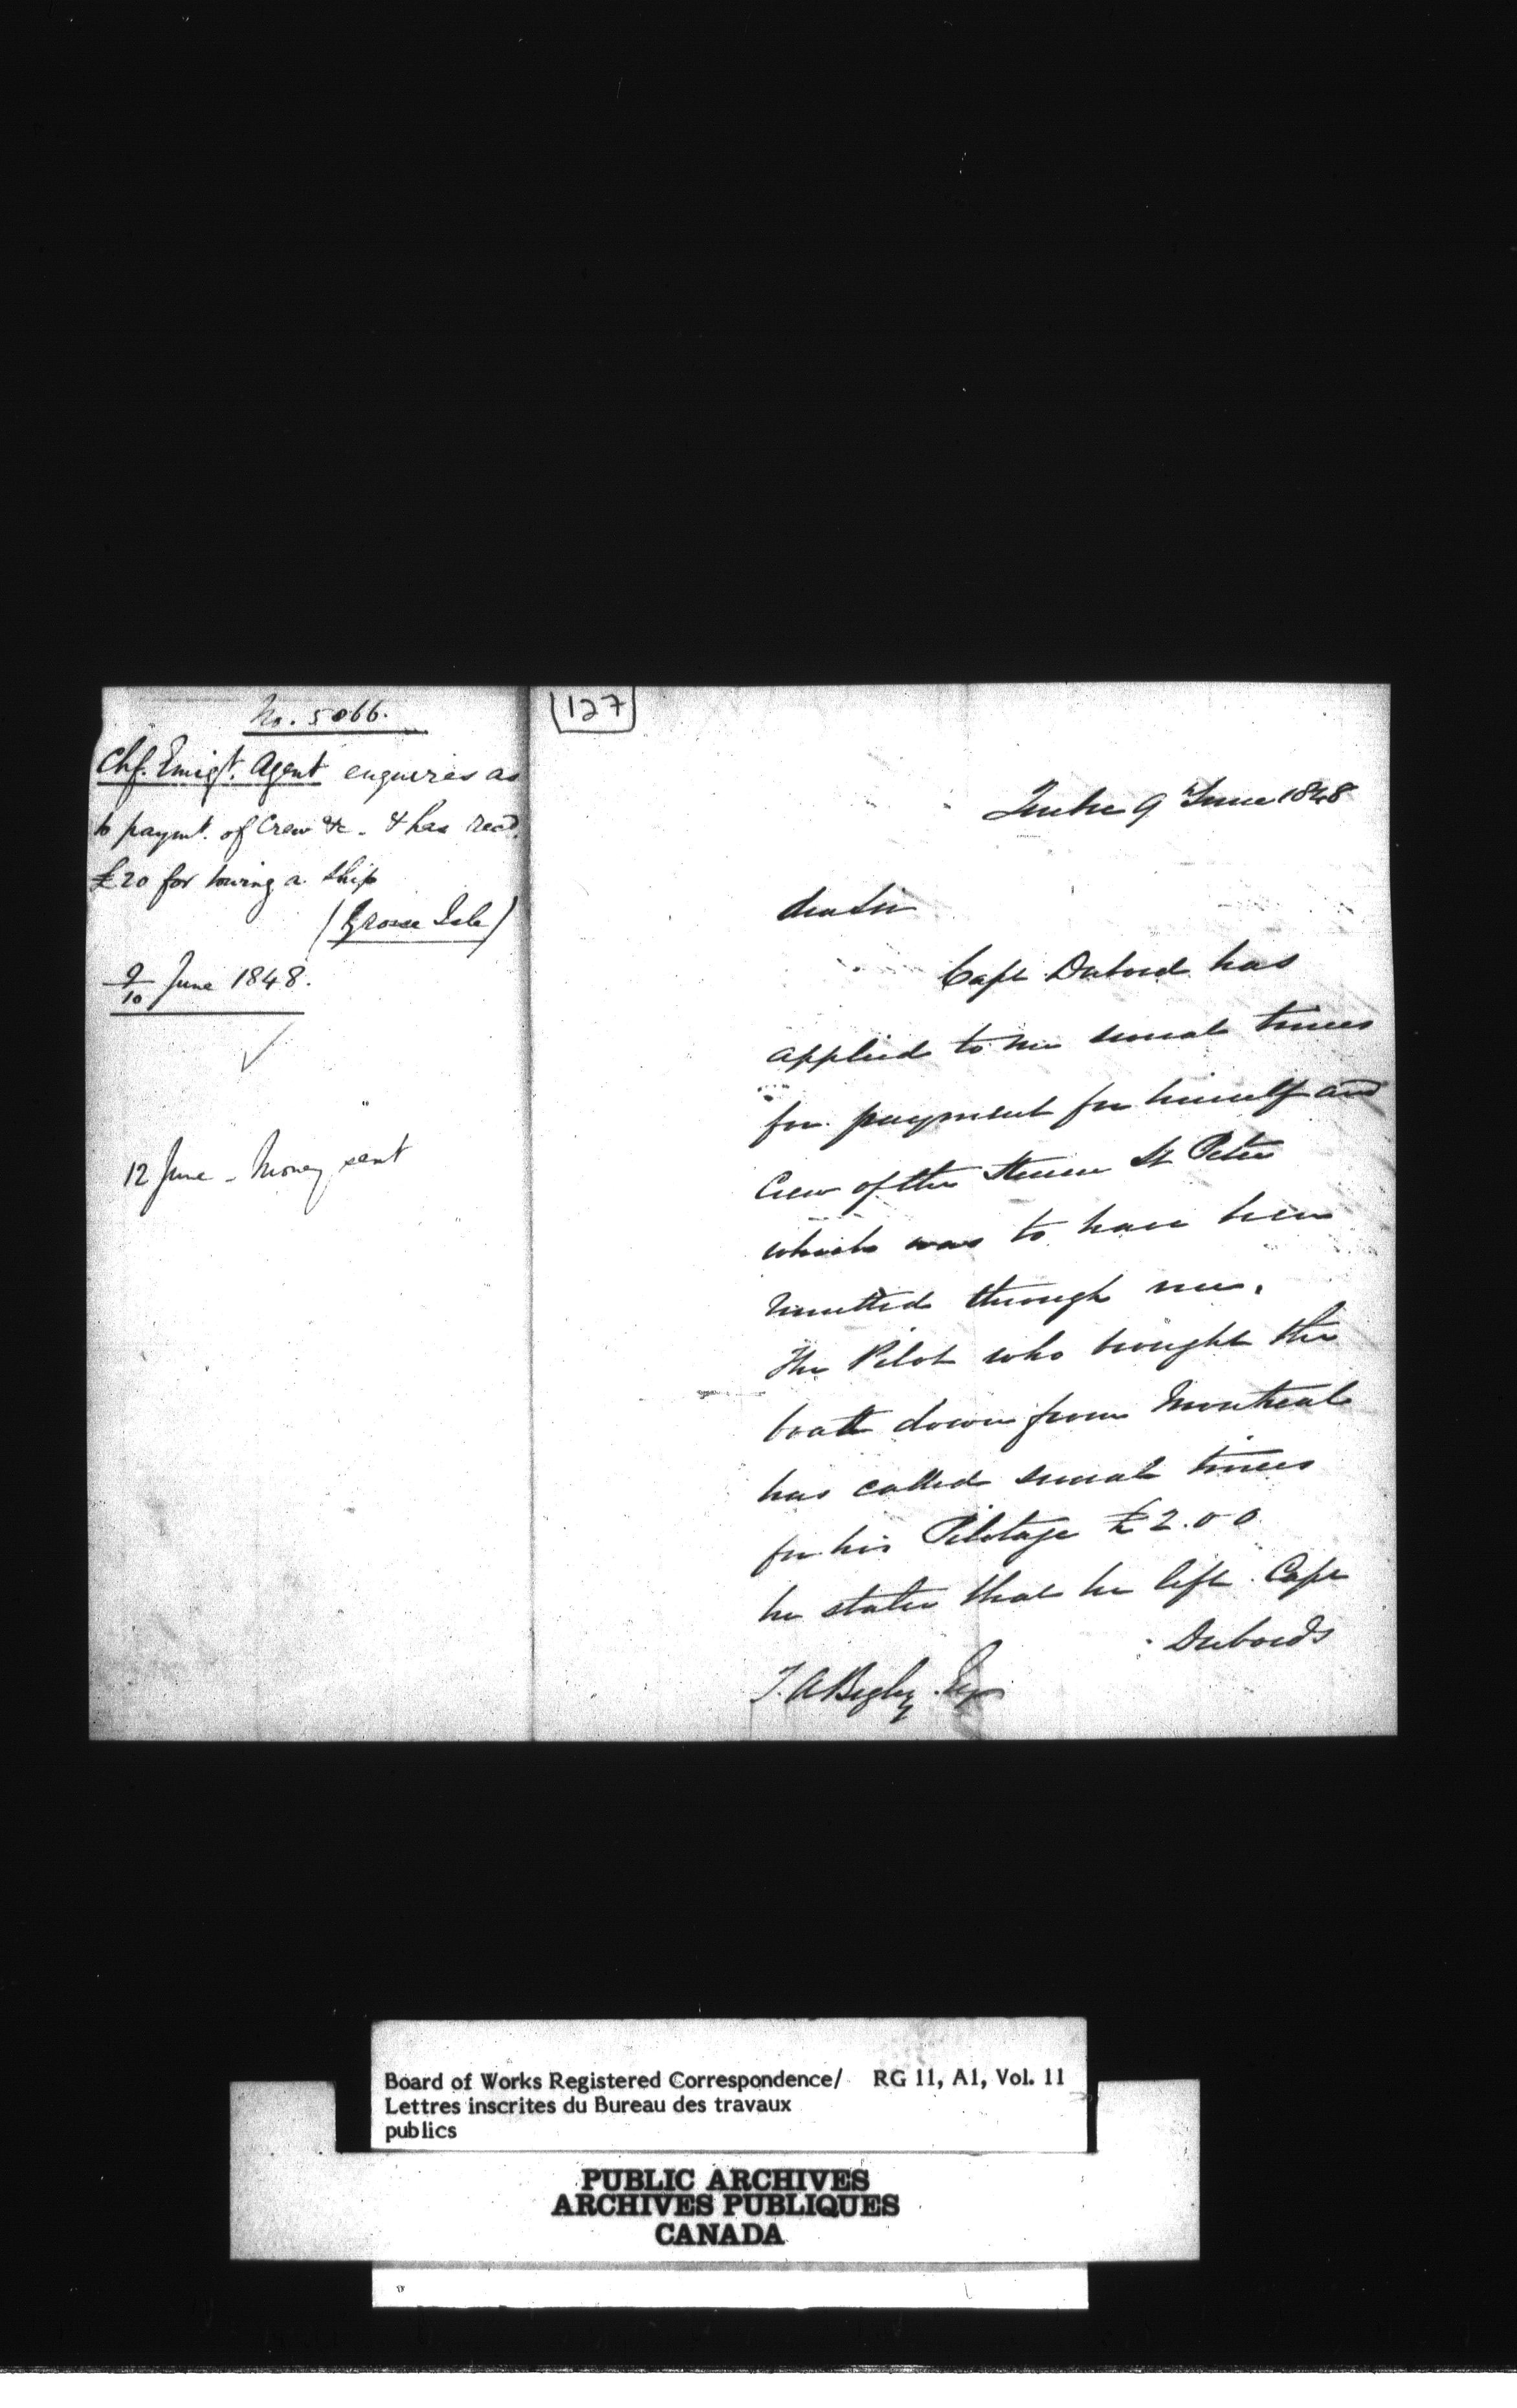 No. 5066.
Chf. Emigt. Agent enquires as
to paymt. of Crew &c. & has recd.
£20 for towing a ship
(Grosse Isle)
9/10 June 1848.
12 June - Money sent
127
Quebec 9 June 1848
Dear Sir
Capt Dubord has
applied to me several times
for payment for himself and
Crew of the Steamer St Peter
which was to have been
remitted through me.
The Pilot who brought the
boat down from Montreal
has called several times
for his Pilotage £2.0 0
he states that he left Capt
Dubords
T. A Begly Esq
Board of Works Registered Correspondence/ RG 11, A1, Vol. 11
Lettres inscrites du Bureau des travaux
publics
PUBLIC ARCHIVES
ARCHIVES PUBLIQUES
CANADA